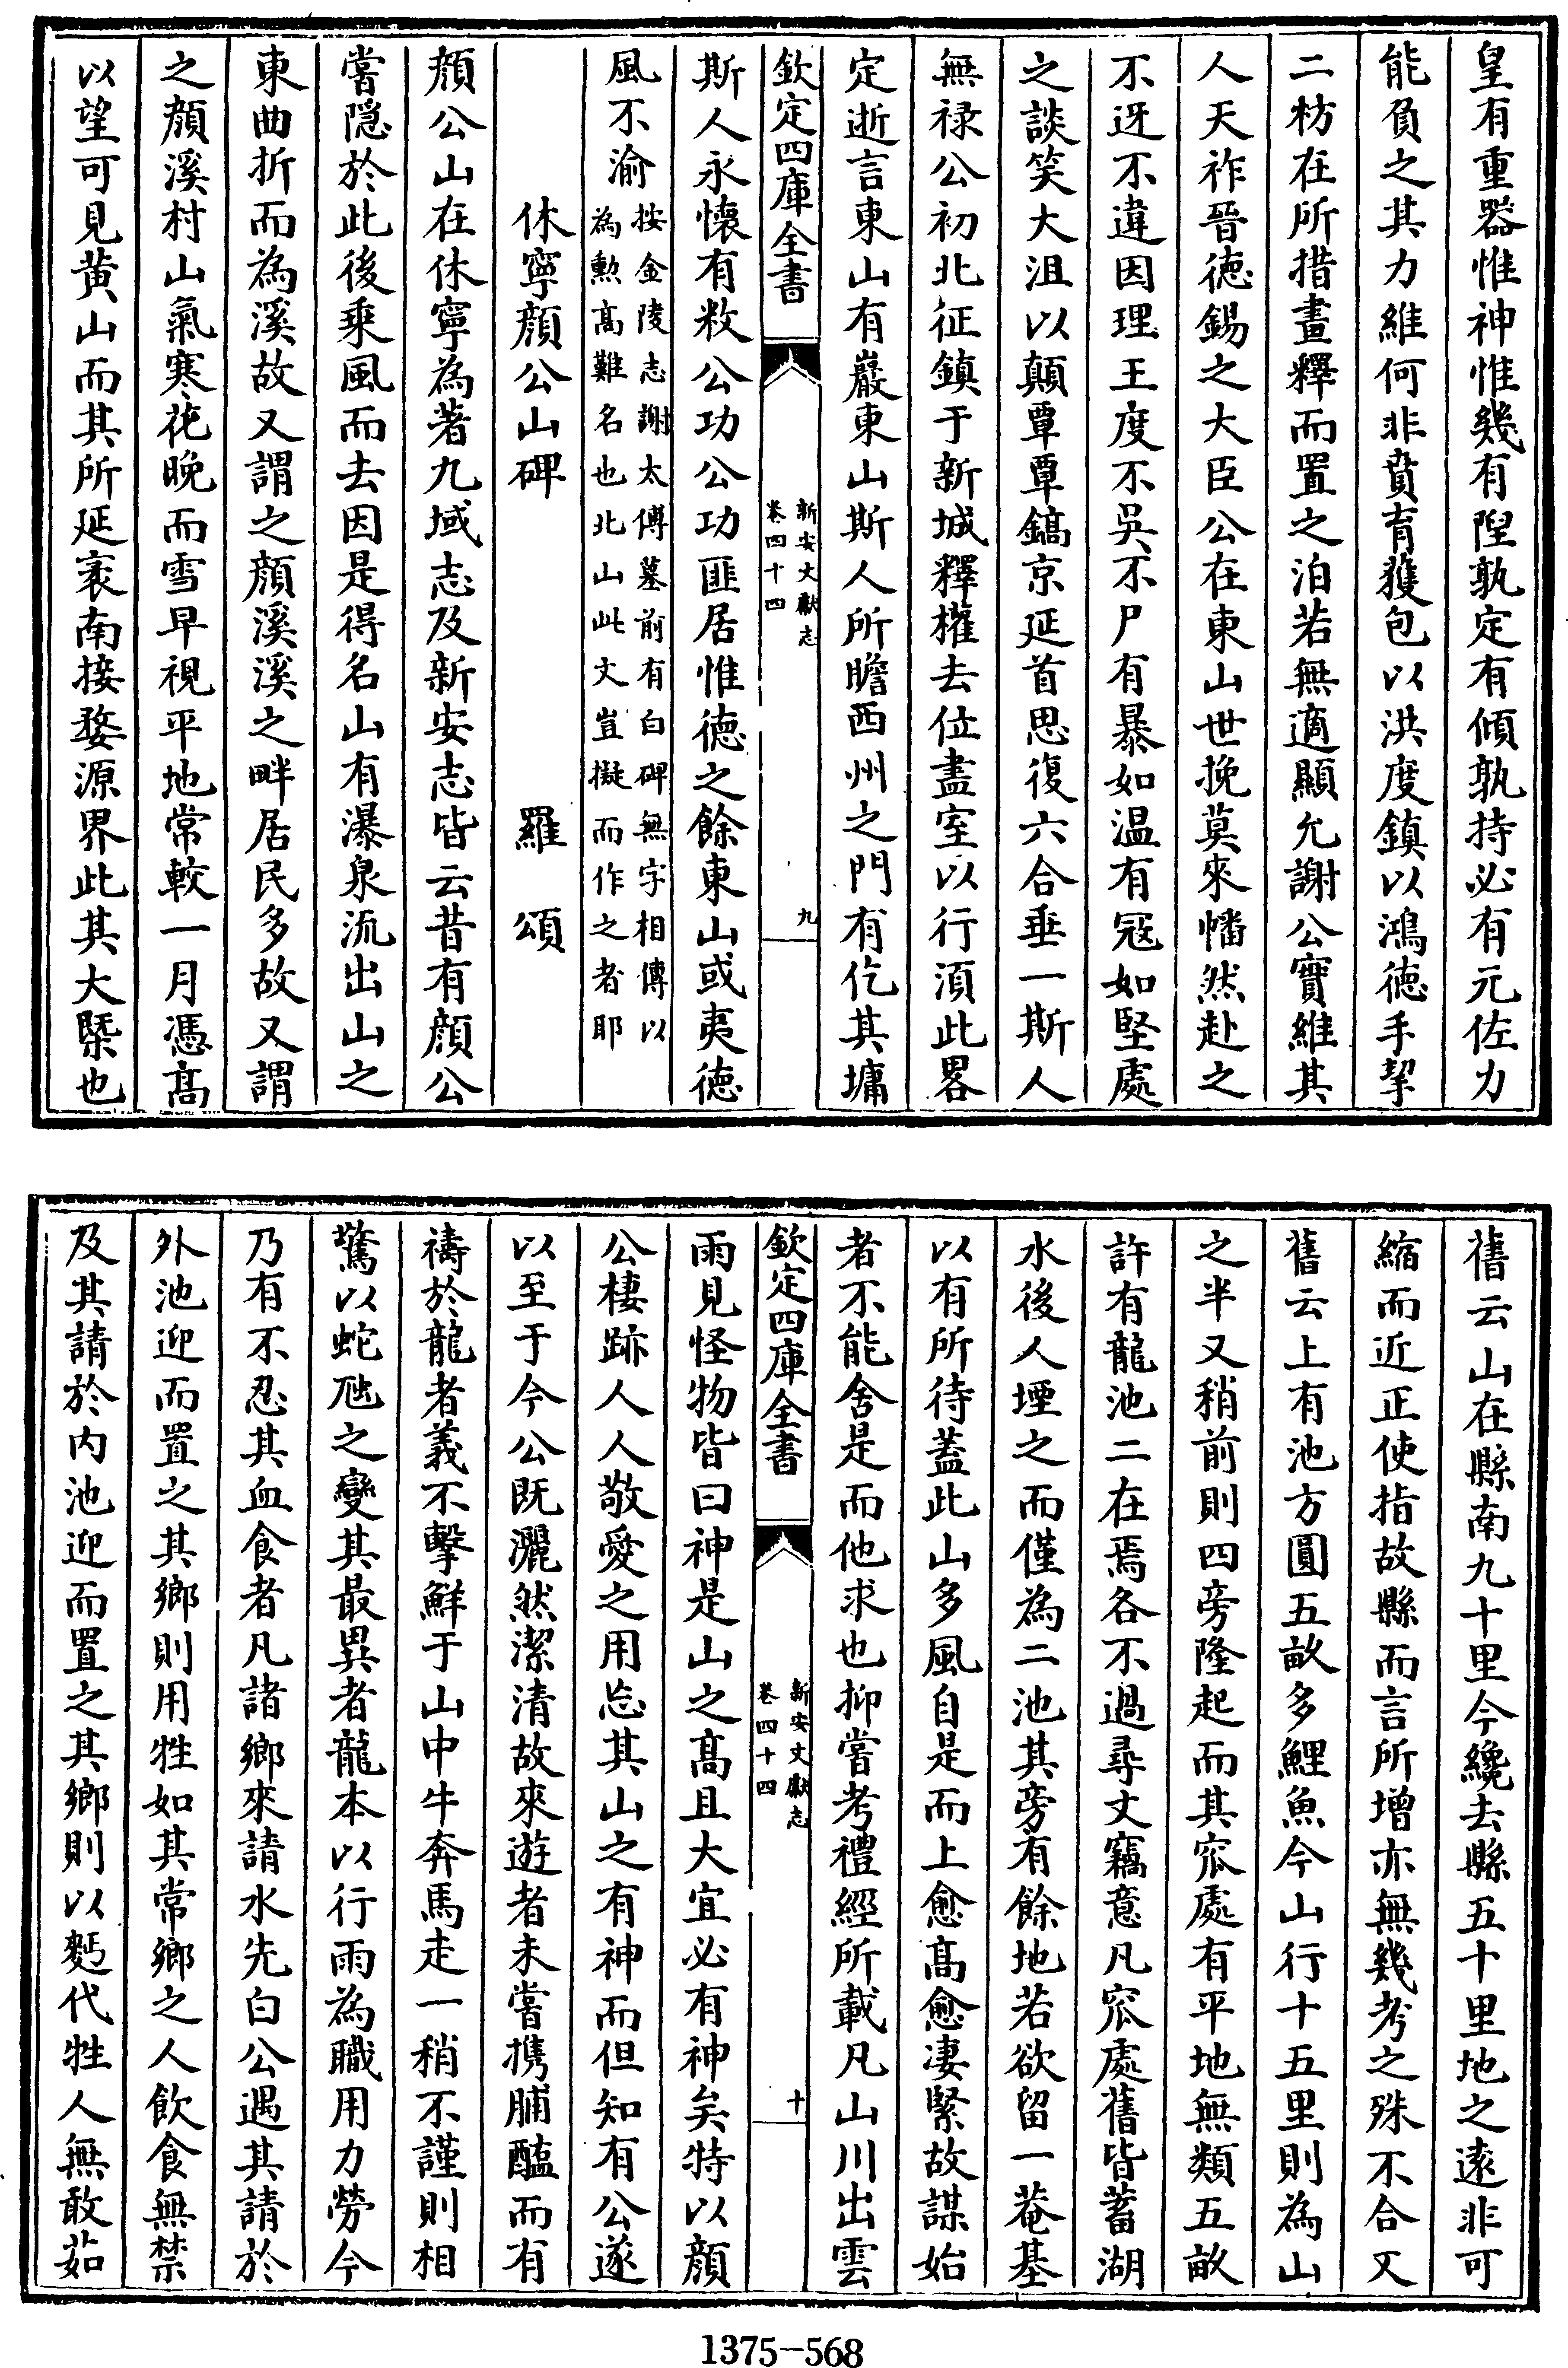 皇有重器惟神惟幾有陧孰定有傾孰持必有元佐力
能負之其力維何非賁育獲包以洪度鎮以鴻德手挈
二枋在所措畫釋而置之泊若無適顯允謝公實維其
人天祚晉德錫之大臣公在東山世挽莫來幡然赴之
不迓不違因理王度不吳不尸有暴如温有冦如堅處
之談笑大沮以顛覃覃鎬京延首思復六合垂一斯人
無禄公初北征鎮于新城釋權去位盡室以行湏此畧
定逝言東山有巖東山斯人所瞻西州之門有仡其墉
欽定四庫全書
新安文獻志
卷四十四
九
斯人永懷有敉公功公功匪居惟德之餘東山或夷德
風不渝
按金陵志謝太傅墓前有白碑無字相傳以
為勲髙難名也北山此文豈擬而作之者耶
休寧顔公山碑 羅頌
顔公山在休寧為著九域志及新安志皆云昔有顔公
嘗隱於此後乘風而去因是得名山有瀑泉流出山之
東曲折而為溪故又謂之顔溪溪之畔居民多故又謂
之顔溪村山氣寒花晚而雪早視平地常較一月憑髙
以望可見黄山而其所延袤南接婺源界此其大槩也
舊云山在縣南九十里今纔去縣五十里地之逺非可
縮而近正使指故縣而言所增亦無幾考之殊不合又
舊云上有池方圓五畝多鯉魚今山行十五里則為山
之半又稍前則四旁隆起而其窊處有平地無類五畝
許有龍池二在焉各不過尋丈竊意凡窊處舊皆蓄湖
水後人堙之而僅為二池其旁有餘地若欲留一菴基
以有所待蓋此山多風自是而上愈髙愈凄緊故謀始
者不能舍是而他求也抑嘗考禮經所載凡山川出雲
欽定四庫全書
新安文獻志
卷四十四
十
雨見怪物皆曰神是山之髙且大宜必有神矣特以顔
公棲跡人人敬愛之用忘其山之有神而但知有公遂
以至于今公既灑然潔清故來遊者未嘗携脯醢而有
禱於龍者義不擊鮮于山中牛奔馬走一稍不謹則相
驚以蛇虺之變其最異者龍本以行雨為職用力勞今
乃有不忍其血食者凡諸鄉來請水先白公遇其請於
外池迎而置之其鄉則用牲如其常鄉之人飲食無禁
及其請於内池迎而置之其鄉則以麪代牲人無敢茹
1375-568